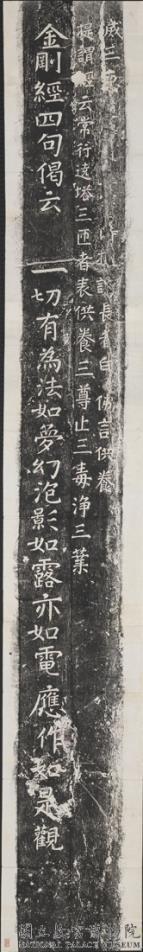 滅三
提謂經云常行遶塔三匝者表供養三尊止三毒淨三業
長者白佛言供養
金剛經四句偈云 一切有為法如夢幻泡影如露亦如電應作如是觀
國立故宮博物院
NATIONAL PALACE MUSEUM